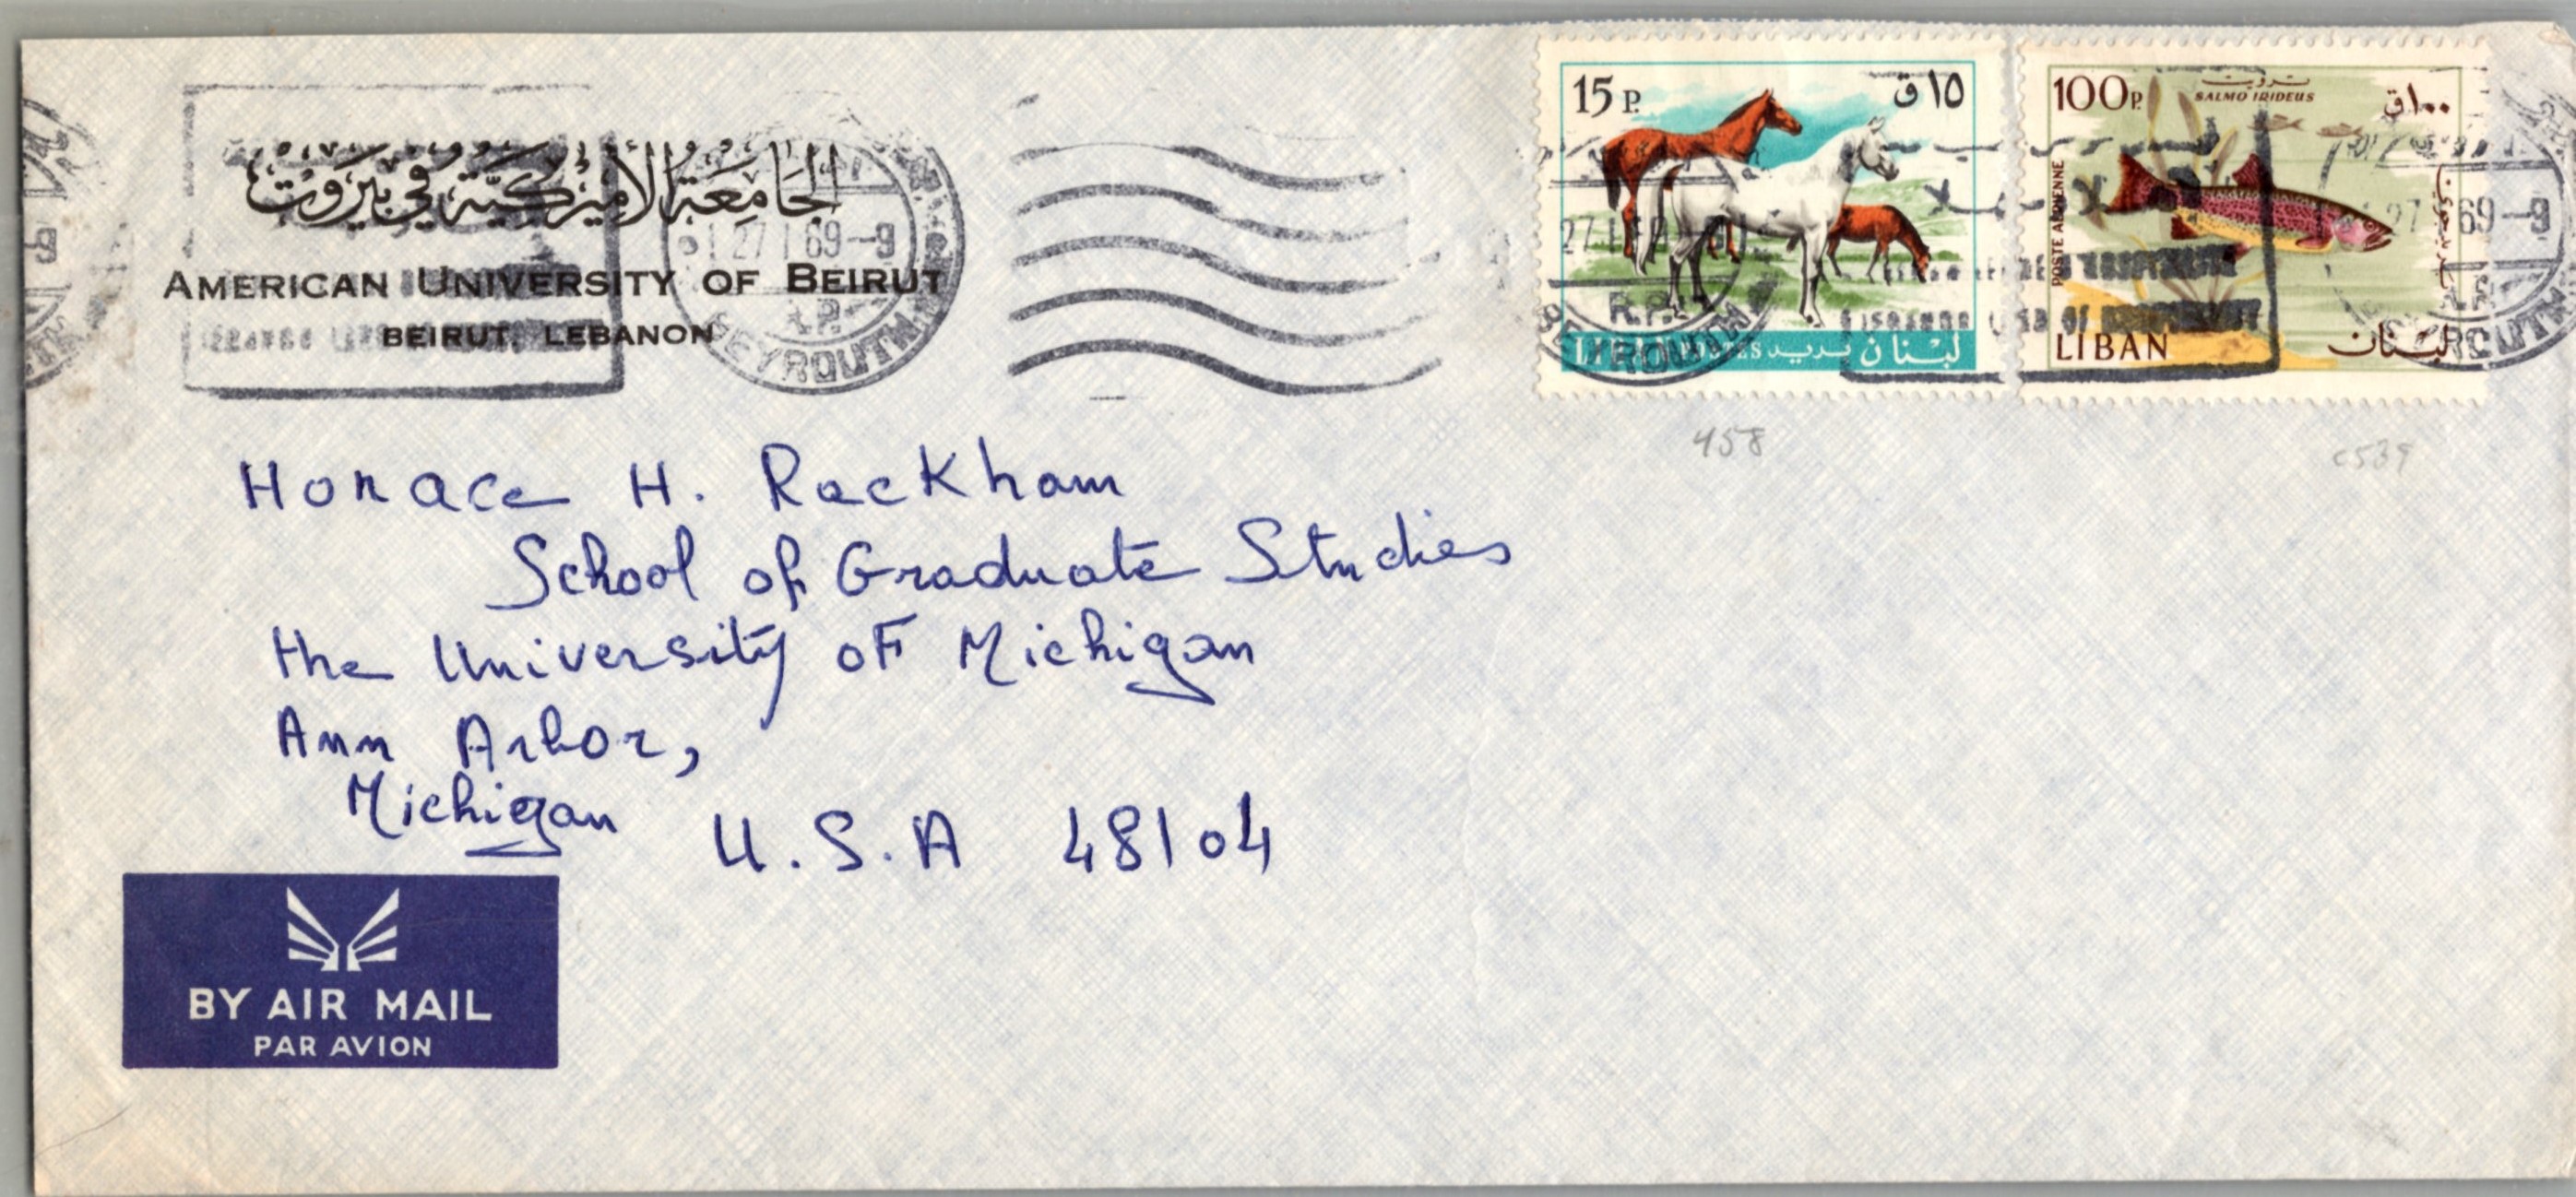 الجامعة الأميركية في بيروت
AMERICAN UNIVERSITY OF BEIRUT
BEIRUT, LEBANON
27 I 69-9
R.P.
BEYROUTH
15 P.
١٥ ق
27 I
R.P.
BEYROUTH
POSTES بريد لبنان
100 P.
ترويت
SALMO IRIDEUS
١٠٠ق
POSTE AERIENNE
بريد جوي
LIBAN
لبنان
27 69-9
458
C539
Horace H. Rackham
School of Graduate Studies
the University of Michigan
Ann Arbor,
Michigan
U.S.A 48104
BY AIR MAIL
PAR AVION